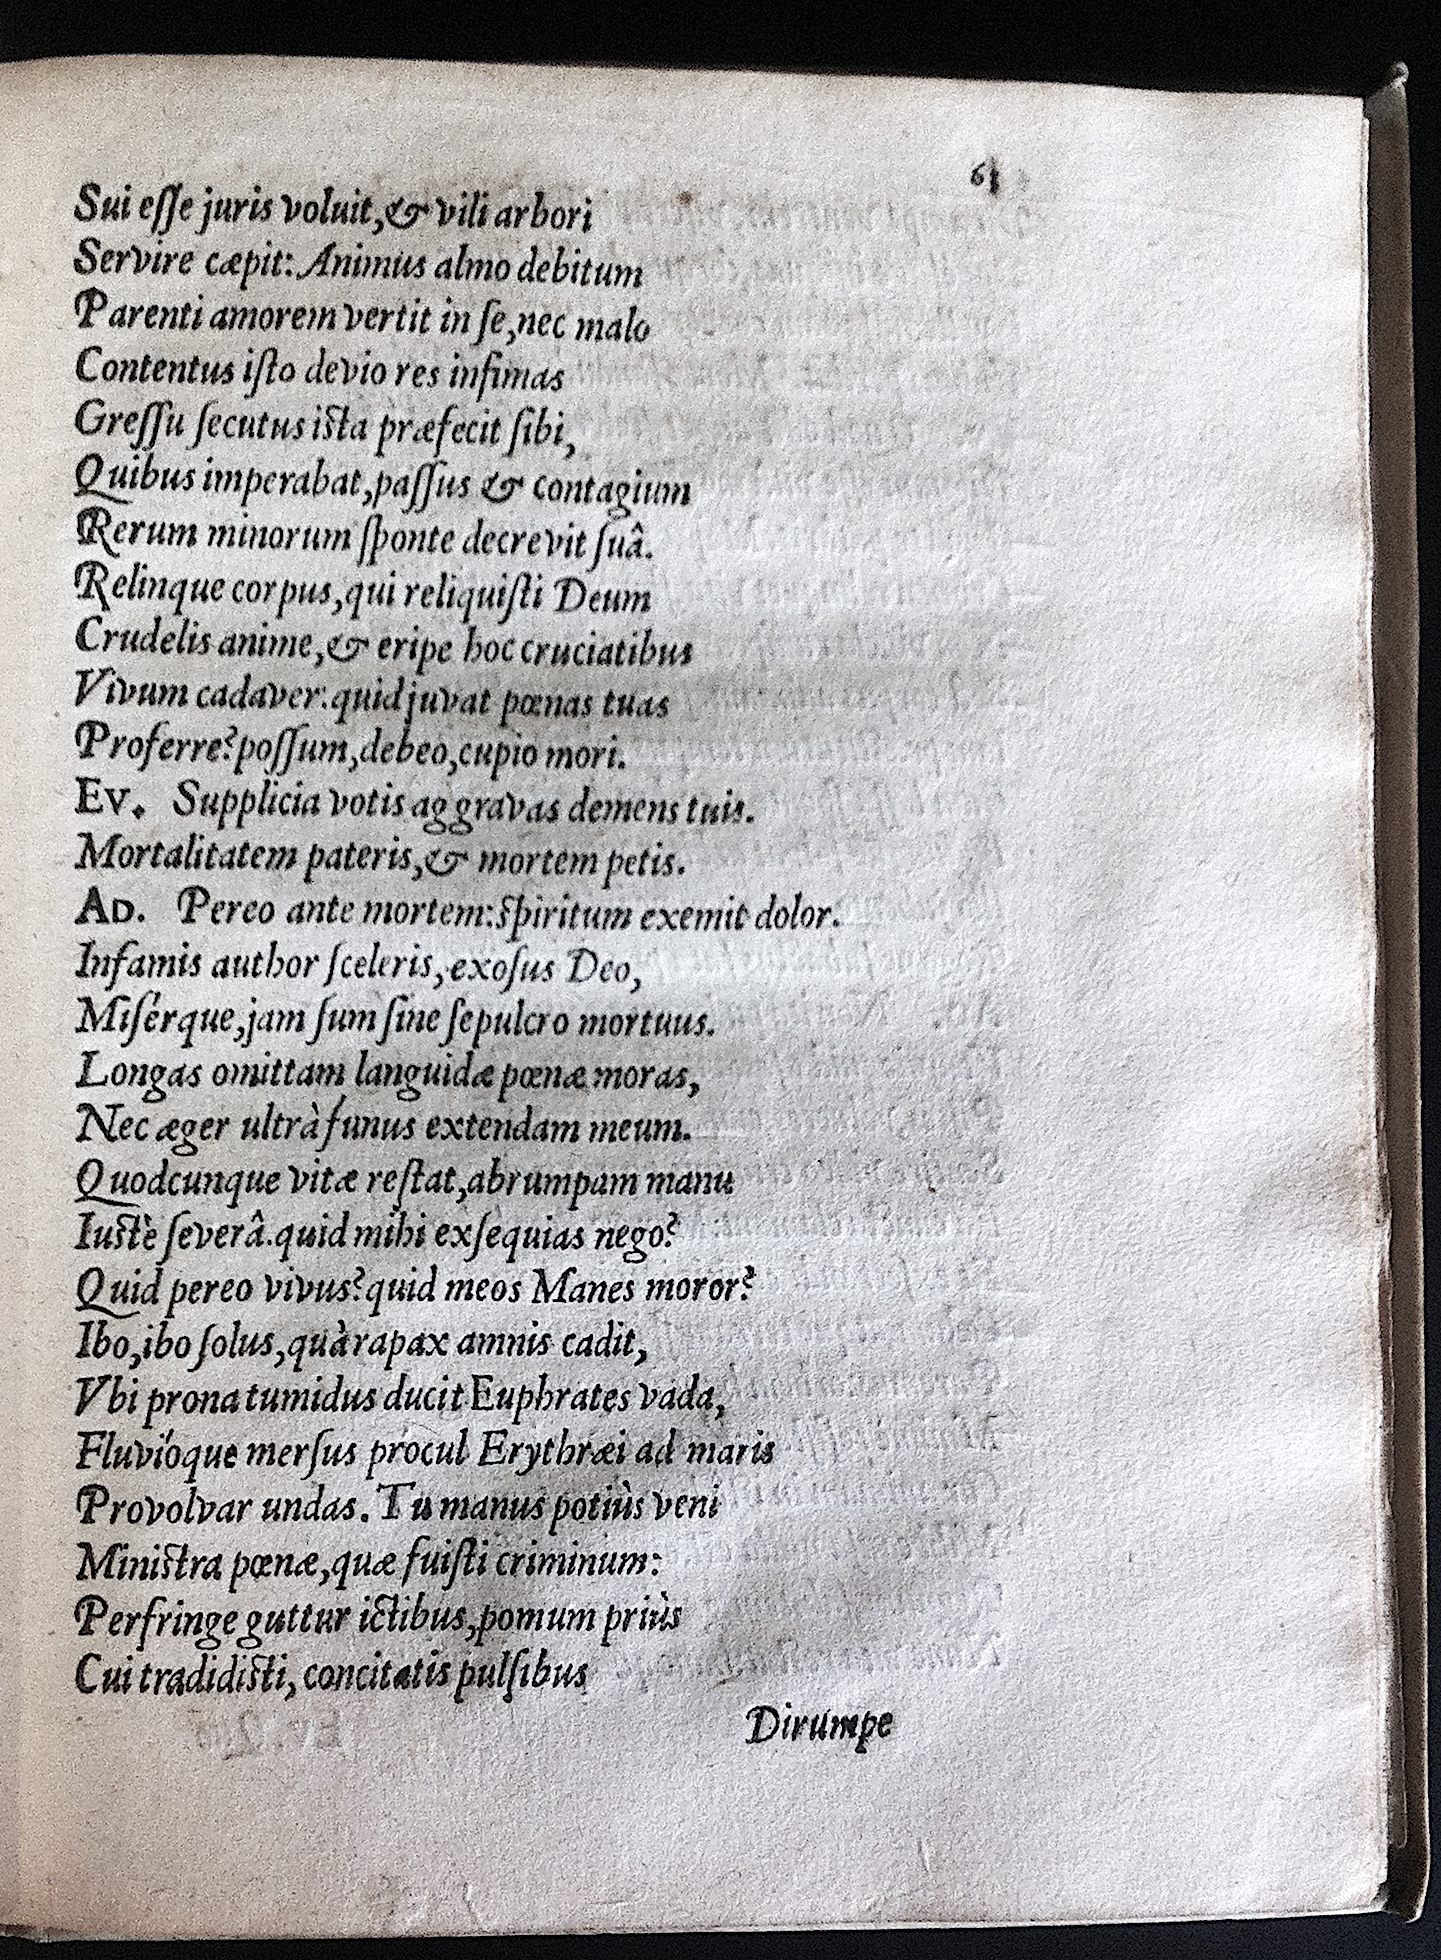 61
Sui eſſe juris voluit,& vili arbori
Servire cæpit: Animus almo debitum
Parenti amorem vertit in ſe,nec malo
Contentus iſto devio res infimas
Greſſu ſecutus iſta præfecit ſibi,
Quibus imperabat,paſſus & contagium
Rerum minorum ſponte decrevit ſuâ.
Relinque corpus,qui reliquiſti Deum
Crudelis anime,& eripe hoc cruciatibus
Vivum cadaver:quid juvat pœnas tuas
Proferre?poſſum,debeo,cupio mori.
Ev. Supplicia votis aggravas demens tuis.
Mortalitatem pateris,& mortem petis.
Ad. Pereo ante mortem:ſpiritum exemit dolor.
Infamis author ſceleris,exoſus Deo,
Miſérque,jam ſum ſine ſepulcro mortuus.
Longas omittam languidæ pœnæ moras,
Nec æger ultrà funus extendam meum.
Quodcunque vitæ reſtat,abrumpam manu
Iuſtè ſeverâ.quid mihi exſequias nego?
Quid pereo vivus?quid meos Manes moror?
Ibo,ibo ſolus,quà rapax amnis cadit,
Vbi prona tumidus ducit Euphrates vada,
Fluvióque merſus procul Erythræi ad maris
Provolvar undas. Tu manus potiùs veni
Miniſtra pœnæ,quæ fuiſti criminum:
Perfringe guttur ictibus,pomum priùs
Cui tradidiſti, concitatis pulſibus
Dirumpe